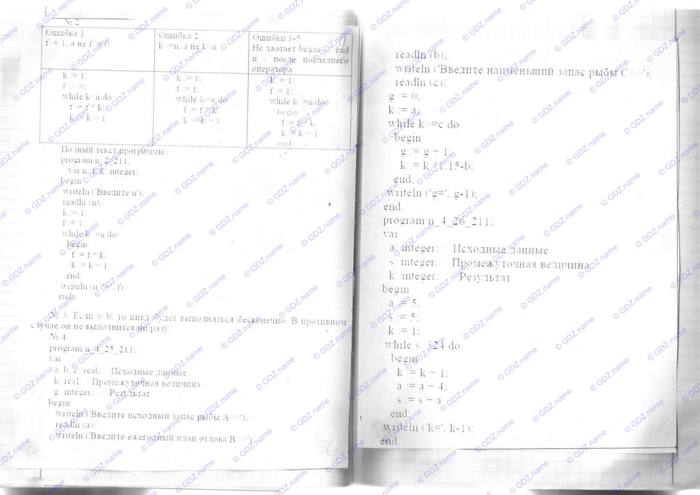 № 2
Ошибка 1
f = 1, а не f = 0
Ошибка 2
k =n, а не k n
Ошибки 3-5
Не хватает begin end
и ; после последнего
оператора
k := 1;
f := 0;
while k n do
f := f * k;
k := k + 1
k := 1;
f := 1;
while k =n do
f := f * k;
k := k + 1
k := 1;
f := 1;
while k =n do
begin
f := f * k;
k := k + 1
end.
Полный текст программы:
program n_2_211;
var n, f, k: integer;
begin
writeln ('Введите n');
readln (n);
k := 1;
f := 1;
while k =n do
begin
f := f * k;
k := k + 1
end.
writeln (n, f);
end
№ 3. Если a b, то цикл будет выполняться бесконечно. В противном
случае он не выполнится ни разу.
№ 4.
program n_4_25_211;
var
a, b, c: real; Исходные данные
k: real; Промежуточная величина
g: integer; Результат
begin
writeln ('Введите исходный запас рыбы A=>');
readln (a);
writeln ('Введите ежегодный план отлова B=>');
readln (b);
writeln ('Введите наименьший запас рыбы C=>');
readln (c);
g := 0;
k := a;
while k >=c do
begin
g := g + 1;
k := k * 1.15-b;
end.
writeln ('g=', g-1);
end.
program n_4_26_211;
var
a: integer; Исходные данные
s: integer; Промежуточная величина
k: integer; Результат
begin
a := 5;
s := 5;
k := 1;
while s 324 do
begin
k := k + 1;
a := a + 4;
s := s + a
end.
writeln ('k=', k-1);
end
© GDZ.name